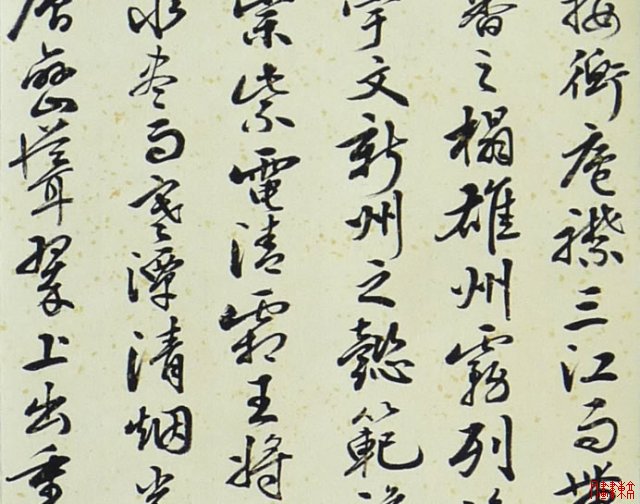 接衡廬襟三江而帶
番之榻雄州霧列
宇文新州之懿範
宗紫電清霜王將
水盡而寒潭清烟光
層巒聳翠上出重